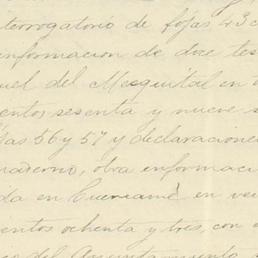 terrogatorio de fojas 43 c
nformacion de doce tes
uel del Mesquital en
entos sesenta y nueve
as 56 y 57 y declaracione
uaderno, obra informaci
da en Cuencamé en vei
entos ochenta y tres, con
del Ayuntamiento